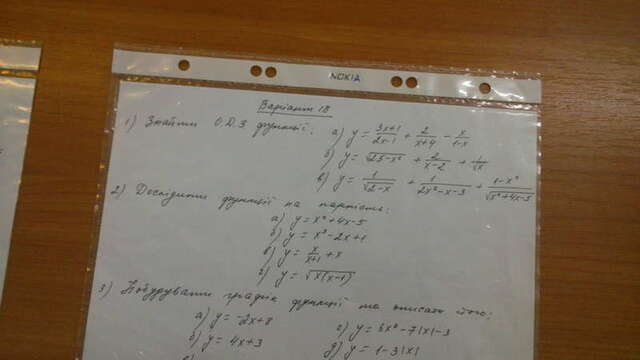 NOKIA
Варіант 18
1) Знайти О.Д.З функції: а) y = \frac{3x+1}{2x-1} + \frac{2}{x+4} - \frac{x}{1-x}
б) y = \sqrt{25-x²} + \frac{2}{x-2} + \frac{1}{\sqrt{x}}
в) y = \frac{1}{\sqrt{2-x}} + \frac{1}{2x²-x-3} + \frac{1-x²}{\sqrt{x²+4x-5}}
2) Дослідити функції на парність:
а) y = x²+4x-5
б) y = x³-2x+1
в) y = \frac{x}{x+1} + x
г) y = \sqrt{x(x-1)}
3) Побудувати графік функції та описати його:
а) y = -2x+8
б) y = 4x+3
г) y = 6x²-7|x|-3
д) y = 1-3|x|